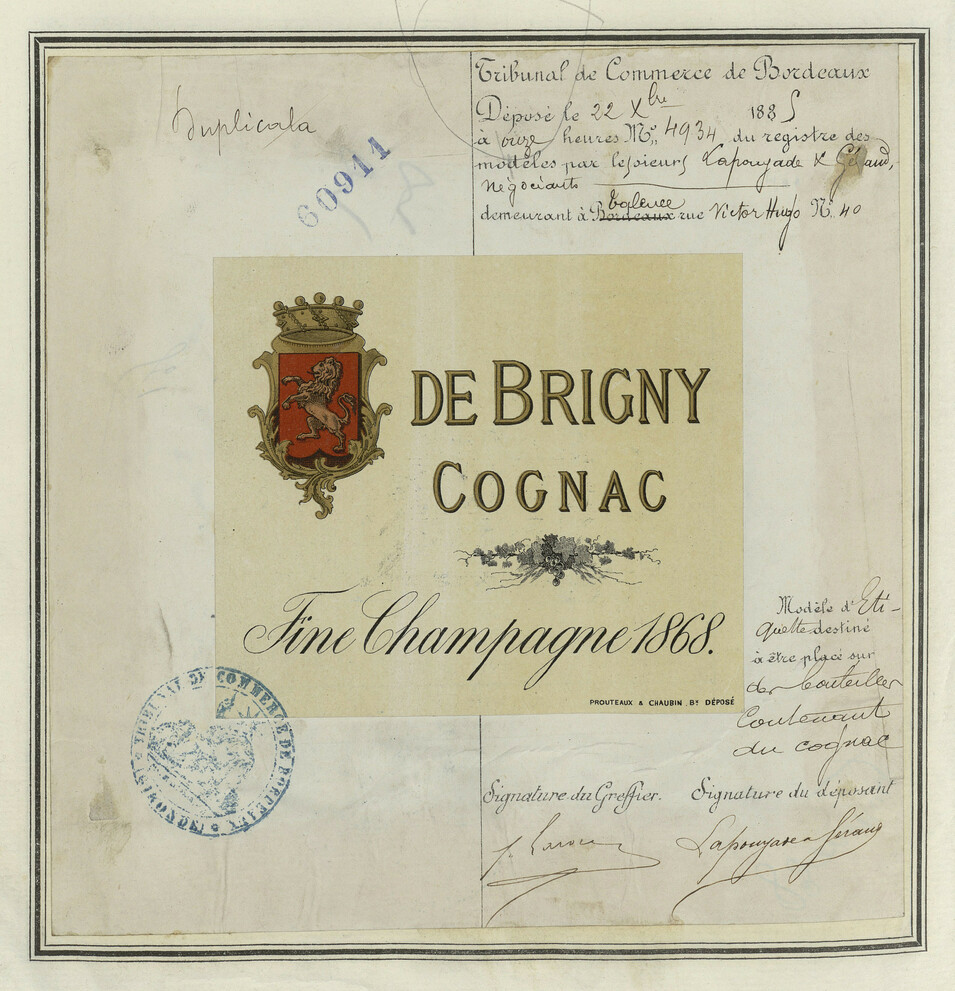 Duplicata
60911
Tribunal de Commerce de Bordeaux
Déposé le 22 Xbre 1885
à onze heures No. 4934, du registre des
modèles par lessieurs Lapouyade & Géraud,
Négociants
demeurant à Bordeaux Talence rue Victor Hugo No. 40
DE BRIGNY
COGNAC
Fine Champagne 1868.
PROUTEAUX & CHAUBIN, Bx DÉPOSÉ
Modèle d'Eti-
quette destiné
à être placé sur
des bouteilles
Contenant
du cognac
TRIBUNAL DE COMMERCE DE BORDEAUX (GIRONDE)
Signature du Greffier.
Signature du déposant
Lapouyade & Géraud